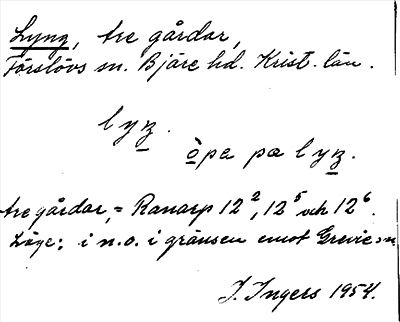 Lyng, tre gårdar,
Förslövs sn. Bjäre hd. Krist. län.
lyŋ.
òpa pa lyŋ.
tre gårdar, = Ranarp 12², 12⁵ och 12⁶.
Läge: i n.o. i gränsen emot Grevie sn
I. Ingers 1954.